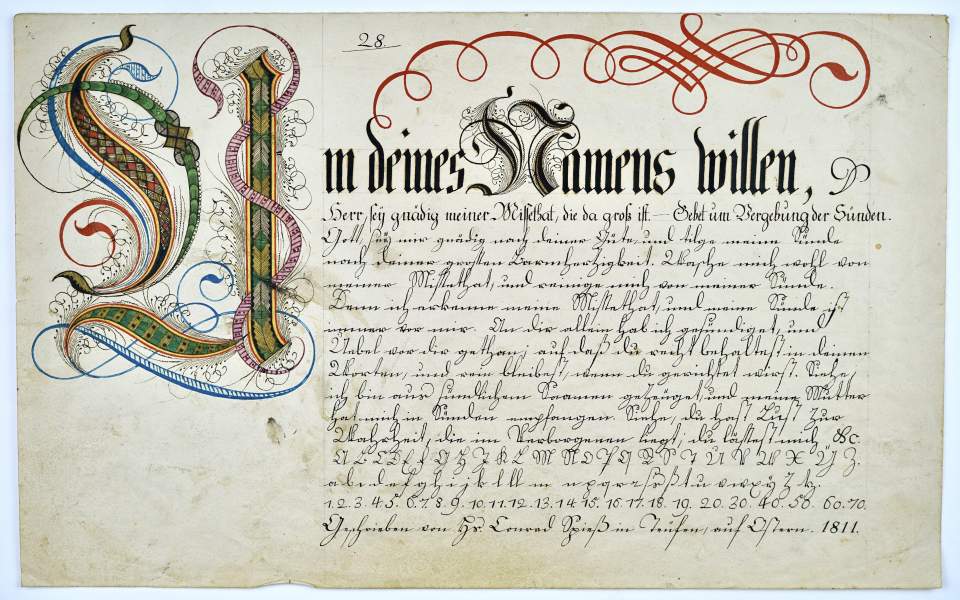 28.
Um deines Namens willen,
Herr, seÿ gnädig meiner Missethat, die da groß ist. — Gebet um Vergebung der Sünden.
Gott, seÿ mir gnädig nach deiner Güte, und tilge meine Sünde
nach deiner grossen Barmherzigkeit. Wasche mich wohl von
meiner Missethat, und reinige mich von meiner Sünde.
Denn ich erkenne meine Missethat, und meine Sünde ist
immer vor mir. An dir allein hab ich gesündiget, und
Uebel vor dir gethan, auf daß du recht behaltest in deinen
Worten, und rein bleibest, wenn du gerichtet wirst. Siehe,
ich bin aus sündlichem Saamen gezeuget, und meine Mutter
hat mich in Sünden empfangen. Siehe, du hast Lust zur
Wahrheit, die im Verborgenen liegt; du lässest mich &c.
A B C D E F G H I K L M N O P Q R S T U V W X Ÿ Z.
a b c d e f g h i j k l ll m n o p q r s ß t u v w x ÿ z tz.
1. 2. 3. 4. 5. 6. 7. 8. 9. 10. 11. 12. 13. 14. 15. 16. 17. 18. 19. 20. 30. 40. 50. 60. 70.
Geschrieben von Hr. Conrad Spieß in Teufen, auf Ostern. 1811.